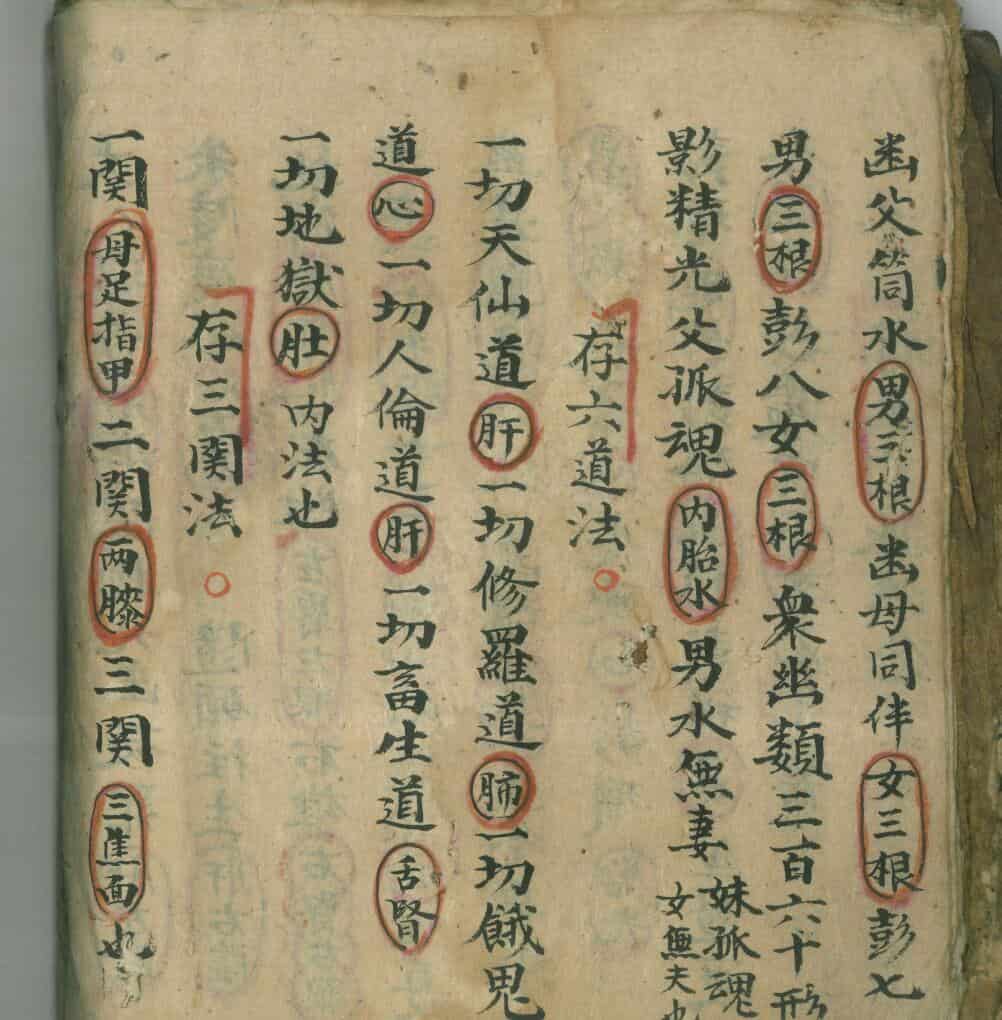 幽父筒水男三根幽母同伴女三根彭七
男三根彭八女三根衆幽類三百六十形
影精光父孤魂内胎水男水無妻妹孤魂女無夫也
存六道法
一切天仙道肝一切修羅道肺一切餓鬼
道心一切人倫道肝一切畜生道舌腎
一切地獄肚内法也
存三関法
一関母足指甲二関两膝三関三焦面也